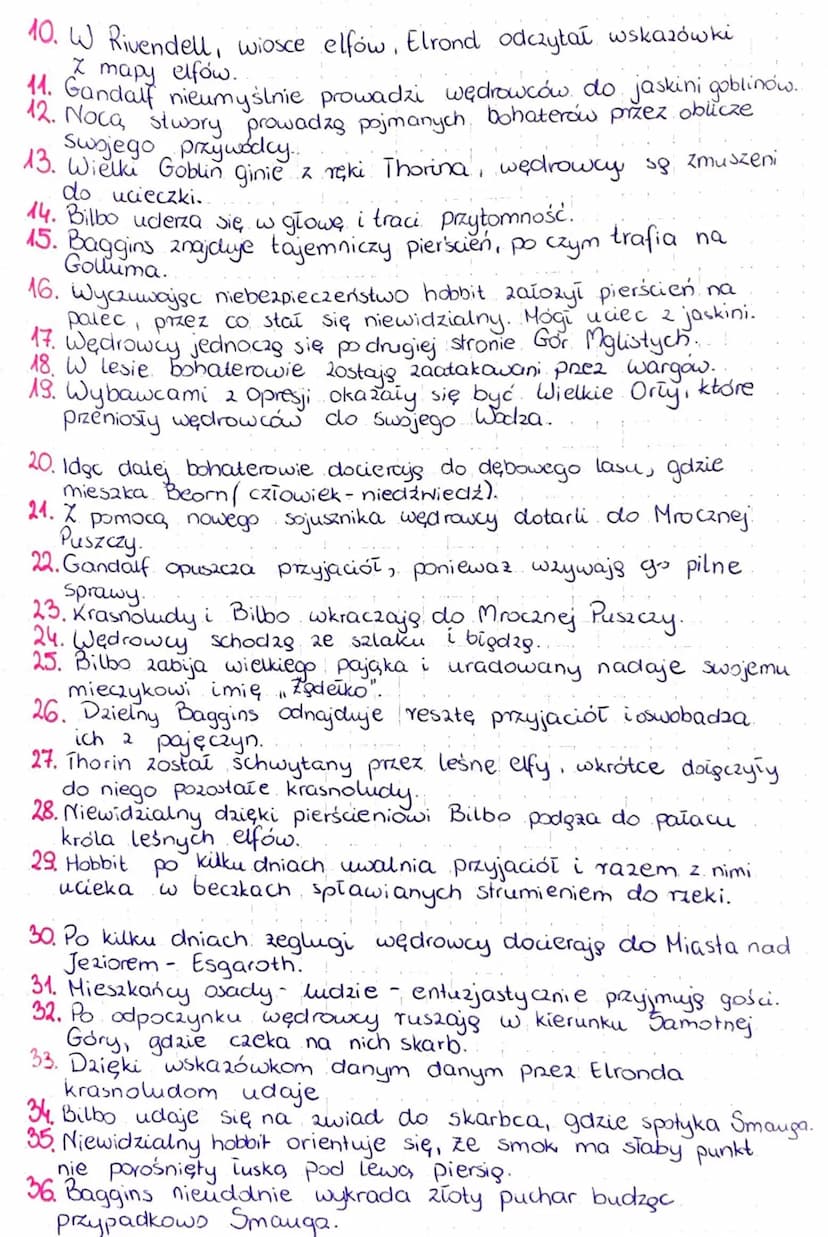 10. W Rivendell, wiosce elfów, Elrond odczytał wskazówki
z mapy elfów.
11. Gandalf nieumyślnie prowadzi wędrowców do jaskini goblinów.
12. Nocą stwory prowadzą pojmanych bohaterów przez oblicze
swojego przywódcy.
13. Wielki Goblin ginie z ręki Thorina, wędrowcy są zmuszeni
do ucieczki.
14. Bilbo uderza się w głowę i traci przytomność.
15. Baggins znajduje tajemniczy pierścień, po czym trafia na
Golluma.
16. Wyczuwając niebezpieczeństwo hobbit założył pierścień na
palec, przez co stał się niewidzialny. Mógł uciec z jaskini.
17. Wędrowcy jednoczą się po drugiej stronie Gór Mglistych.
18. W lesie bohaterowie zostają zaatakowani przez wargów.
19. Wybawcami z opresji okazały się być Wielkie Orły, które
przeniosły wędrowców do swojego Wodza.
20. Idąc dalej bohaterowie docierają do dębowego lasu, gdzie
mieszka Beorn (człowiek - niedźwiedź).
21. Z pomocą nowego sojusznika wędrowcy dotarli do Mrocznej
Puszczy.
22. Gandalf opuszcza przyjaciół, ponieważ wzywają go pilne
sprawy.
23. Krasnoludy i Bilbo wkraczają do Mrocznej Puszczy.
24. Wędrowcy schodzą ze szlaku i błądzą.
25. Bilbo zabija wielkiego pająka i uradowany nadaje swojemu
mieczykowi imię „Żądełko".
26. Dzielny Baggins odnajduje resztę przyjaciół i oswobadza
ich z pajęczyn.
27. Thorin został schwytany przez leśne elfy, wkrótce dołączyły
do niego pozostałe krasnoludy.
28. Niewidzialny dzięki pierścieniowi Bilbo podąża do pałacu
króla leśnych elfów.
29. Hobbit po kilku dniach uwalnia przyjaciół i razem z nimi
ucieka w beczkach spławianych strumieniem do rzeki.
30. Po kilku dniach żeglugi wędrowcy docierają do Miasta nad
Jeziorem - Esgaroth.
31. Mieszkańcy osady - ludzie - entuzjastycznie przyjmują gości.
32. Po odpoczynku wędrowcy ruszają w kierunku Samotnej
Góry, gdzie czeka na nich skarb.
33. Dzięki wskazówkom danym danym przez Elronda
krasnoludom udaje
34. Bilbo udaje się na zwiad do skarbca, gdzie spotyka Smauga.
35. Niewidzialny hobbit orientuje się, że smok ma słaby punkt
nie porośnięty łuską pod lewą piersią.
36. Baggins nieudolnie wykrada złoty puchar budząc
przypadkowo Smauga.